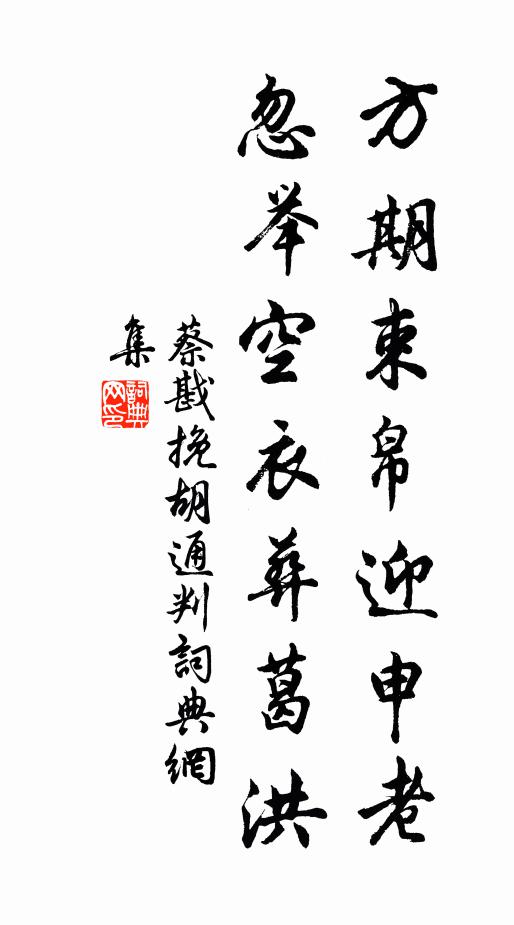 方期束帛迎申老
忽举空衣葬葛洪
蔡戡挽胡通判詞典網
集
詞典网印